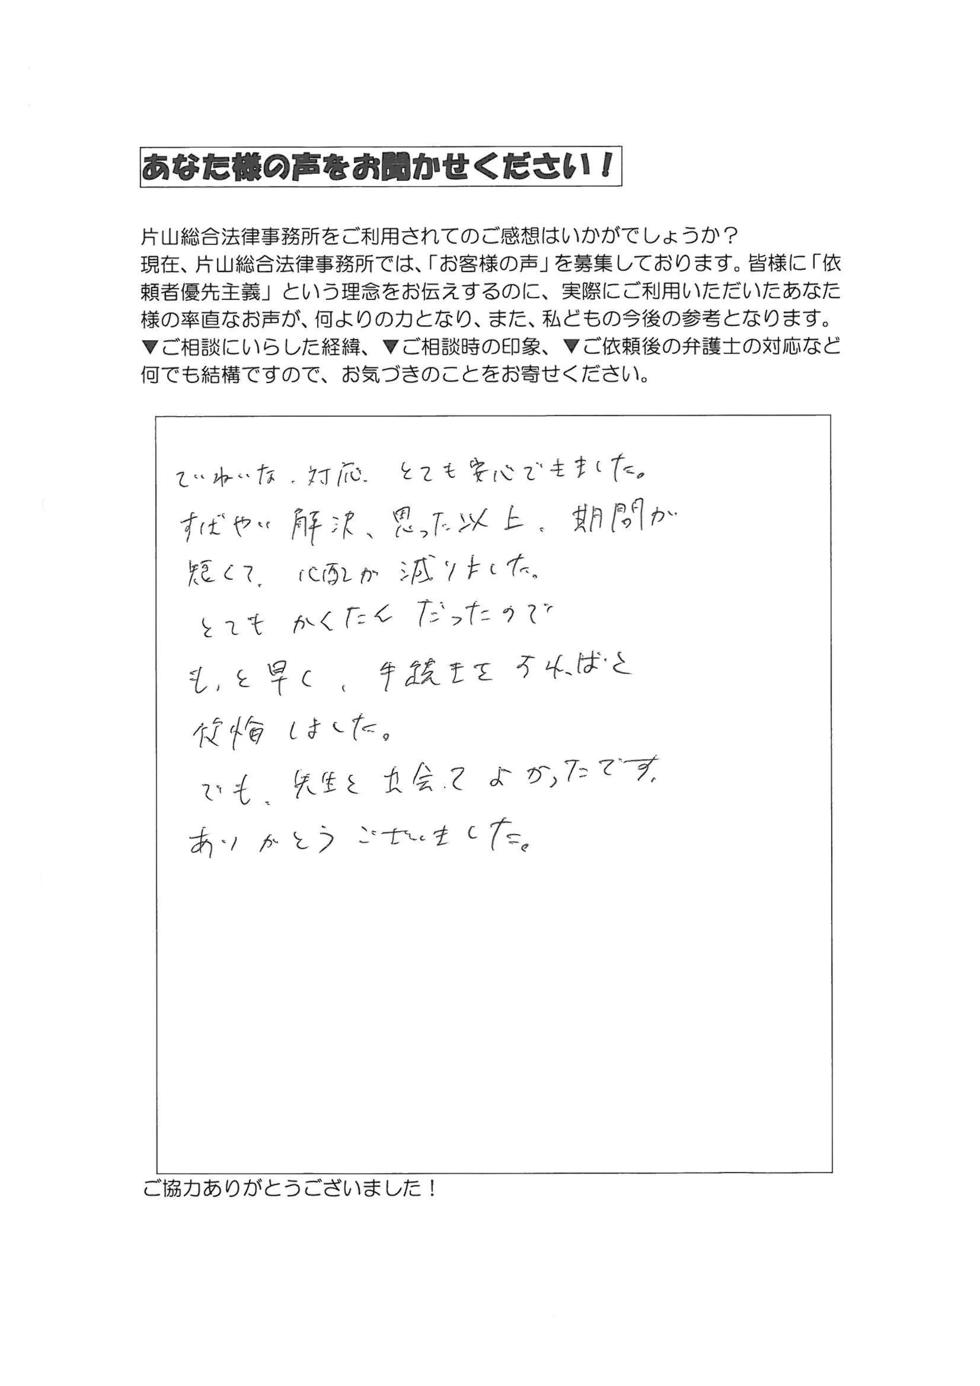 あなた様の声をお聞かせください！
片山総合法律事務所をご利用されてのご感想はいかがでしょうか？
現在、片山総合法律事務所では、「お客様の声」を募集しております。皆様に「依
頼者優先主義」という理念をお伝えするのに、実際にご利用いただいたあなた
様の率直なお声が、何よりの力となり、また、私どもの今後の参考となります。
▼ご相談にいらした経緯、▼ご相談時の印象、▼ご依頼後の弁護士の対応など
何でも結構ですので、お気づきのことをお寄せください。
ていねいな、対応、とても安心できました。
すばやい解決、思った以上、期間が
短くて、心配が減りました。
とてもかくたんだったので
もっと早く、手続きをすればと
後悔しました。
でも、先生と出会てよかったです。
ありがとうございました。
ご協力ありがとうございました！